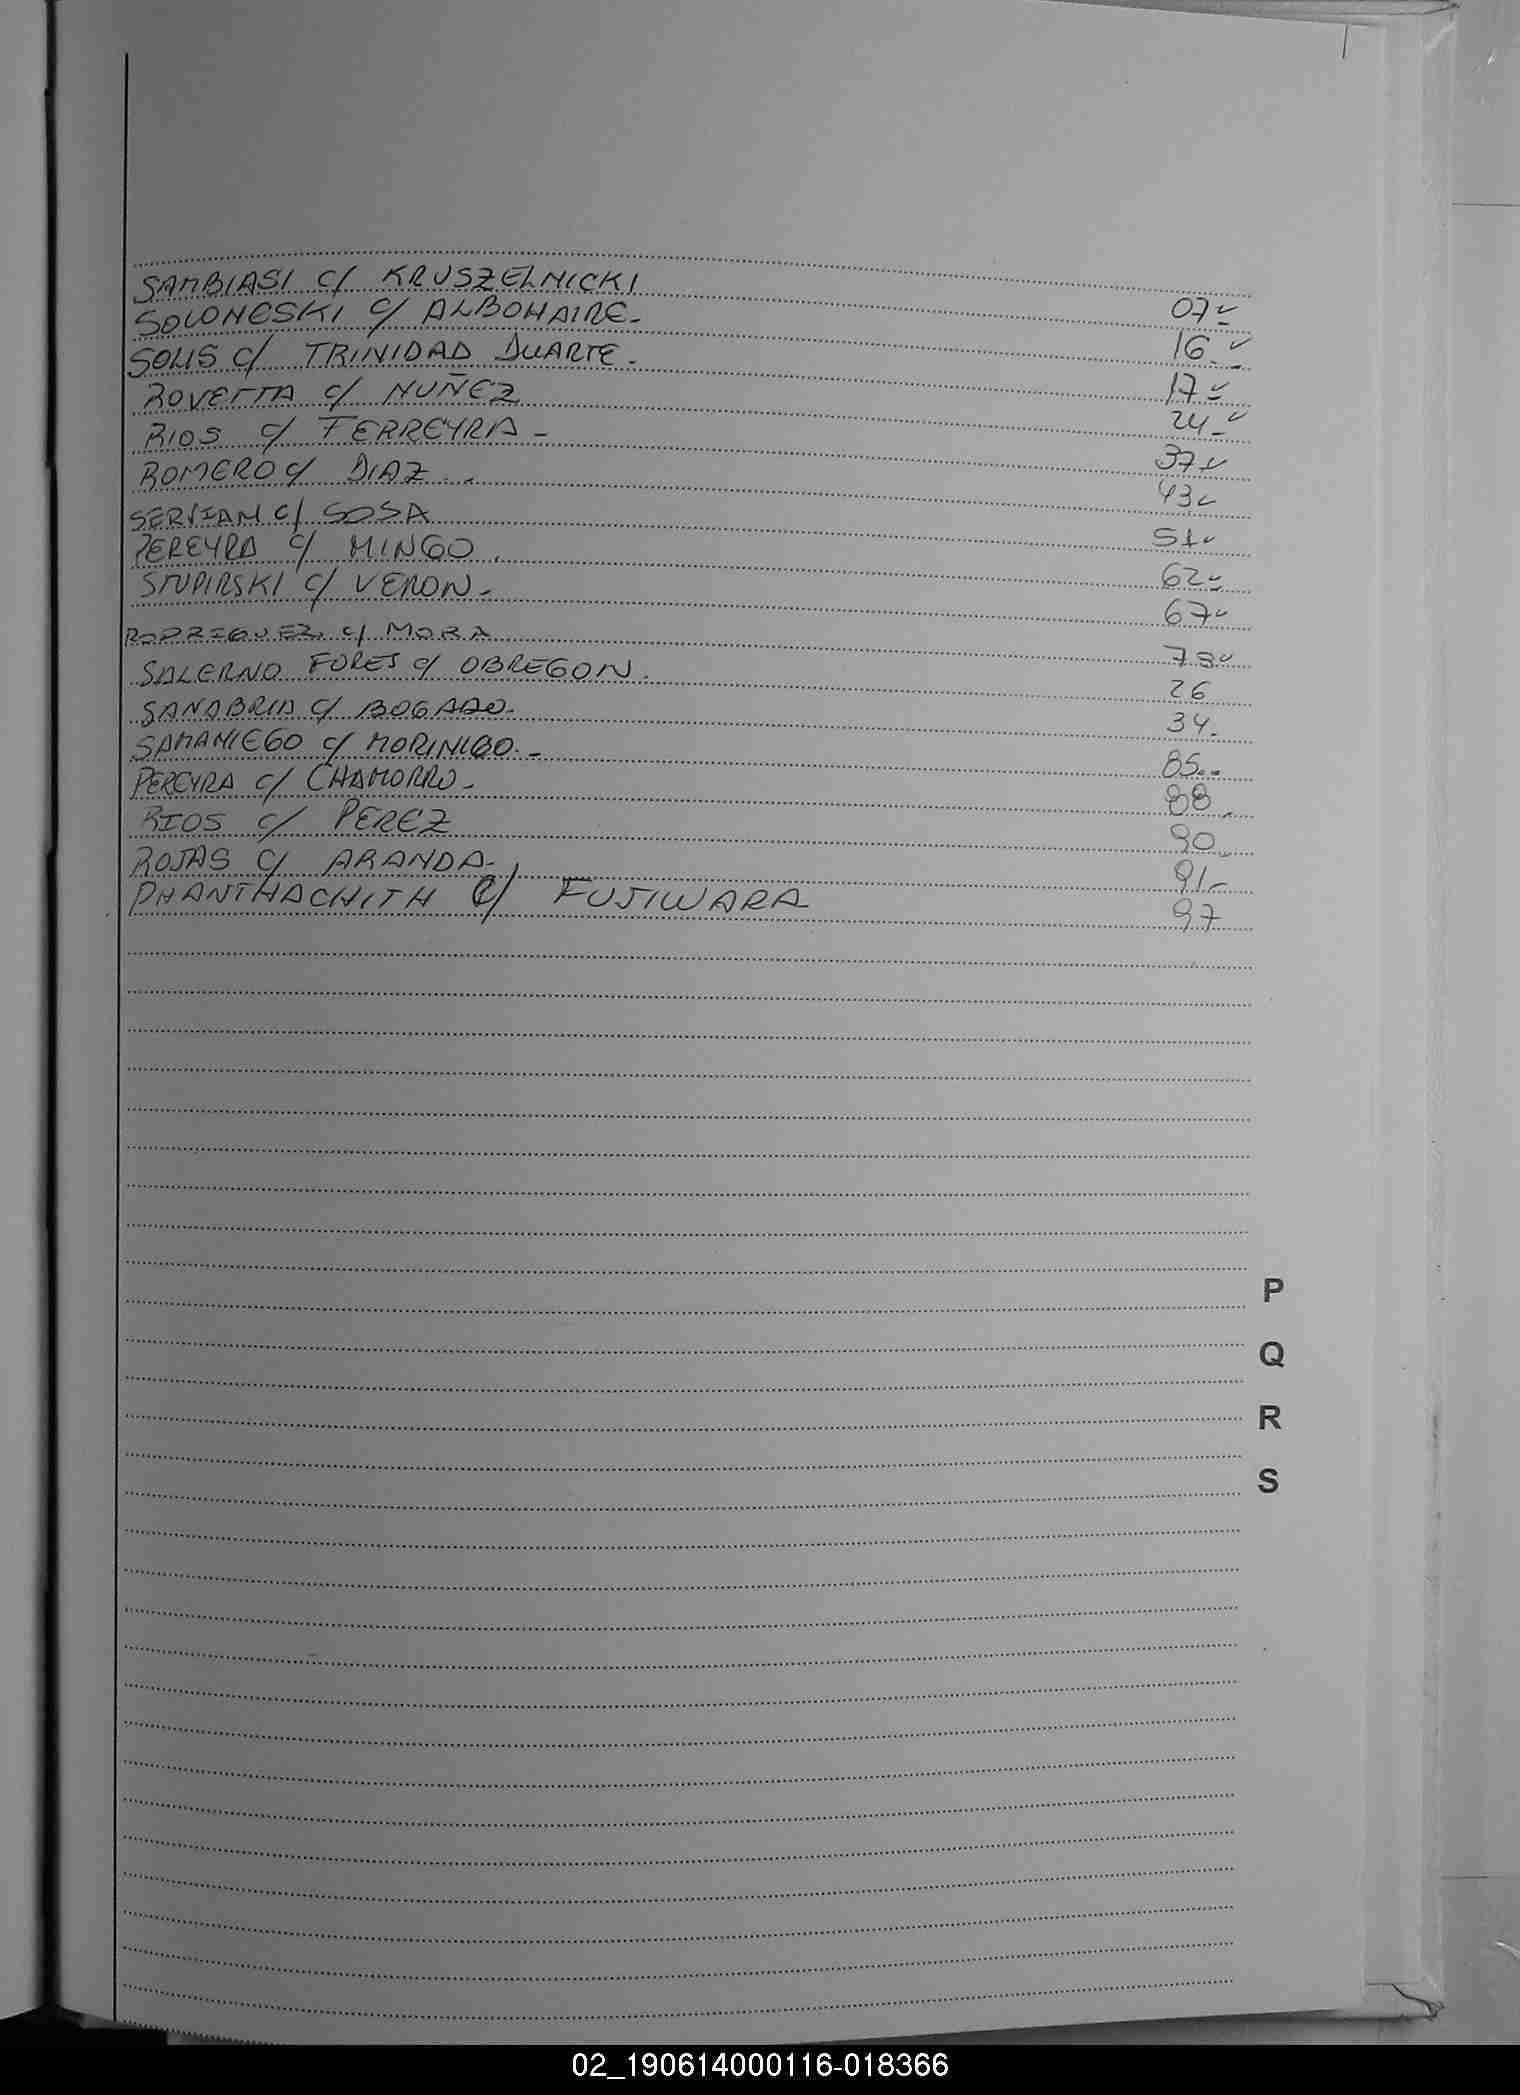 SAMBIASI c/ KRUSZELNICKI 07
SOLONESKI c/ ALBONAIRE. 16
SOLIS c/ TRINIDAD DUARTE. 17
ROVETTA c/ NUÑEZ 24
RIOS c/ FERREYRA 37
ROMERO c/ DIAZ 43
SERVIAN c/ SOSA 51
PEREYRA c/ MINGO. 62
STUPIRSKI c/ VERON 67
RODRIGUEZ c/ MORA
SALERNO FORES c/ OBREGON. 26
SANABRIA c/ BOGADO. 34
SAMANIEGO c/ MORINIGO. 85
PEREYRA c/ CHAMORRO 88
RIOS c/ PEREZ 90
ROJAS c/ ARANDA 91
PHANTHACHITH c/ FUJIWARA 97
P
Q
R
S
02_190614000116-018366